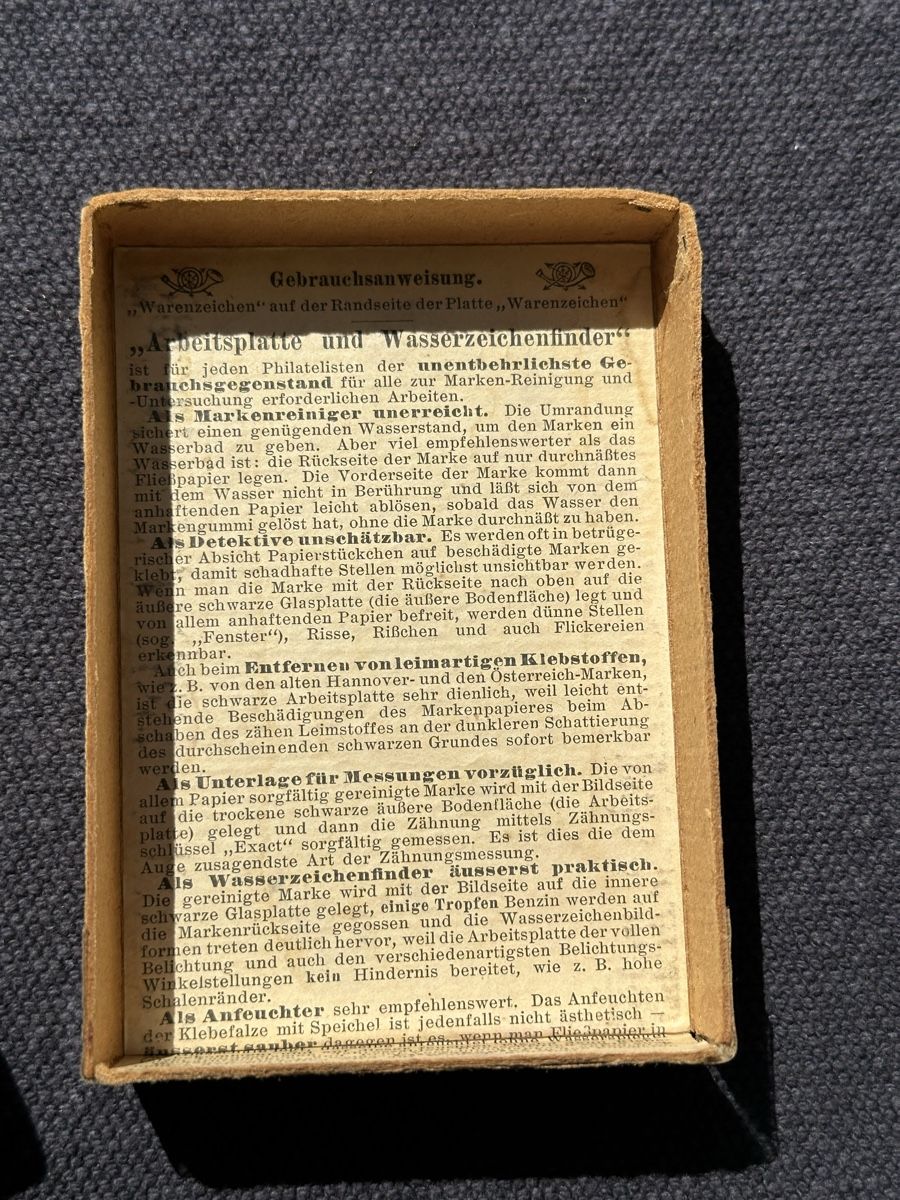 Gebrauchsanweisung.
„Warenzeichen“ auf der Randseite der Platte „Warenzeichen“
„Arbeitsplatte und Wasserzeichenfinder“
ist für jeden Philatelisten der unentbehrlichste Ge-
brauchsgegenstand für alle zur Marken-Reinigung und
-Untersuchung erforderlichen Arbeiten.
Als Markenreiniger unerreicht. Die Umrandung
sichert einen genügenden Wasserstand, um den Marken ein
Wasserbad zu geben. Aber viel empfehlenswerter als das
Wasserbad ist: die Rückseite der Marke auf nur durchnäßtes
Fließpapier legen. Die Vorderseite der Marke kommt dann
mit dem Wasser nicht in Berührung und läßt sich von dem
anhaftenden Papier leicht ablösen, sobald das Wasser den
Markengummi gelöst hat, ohne die Marke durchnäßt zu haben.
Als Detektive unschätzbar. Es werden oft in betrüge-
rischer Absicht Papierstückchen auf beschädigte Marken ge-
klebt, damit schadhafte Stellen möglichst unsichtbar werden.
Wenn man die Marke mit der Rückseite nach oben auf die
äußere schwarze Glasplatte (die äußere Bodenfläche) legt und
von allem anhaftenden Papier befreit, werden dünne Stellen
(sog. „Fenster“), Risse, Rißchen und auch Flickereien
erkennbar.
Auch beim Entfernen von leimartigen Klebstoffen,
wie z. B. von den alten Hannover- und den Österreich-Marken,
ist die schwarze Arbeitsplatte sehr dienlich, weil leicht ent-
stehende Beschädigungen des Markenpapieres beim Ab-
schaben des zähen Leimstoffes an der dunkleren Schattierung
des durchscheinenden schwarzen Grundes sofort bemerkbar
werden.
Als Unterlage für Messungen vorzüglich. Die von
allem Papier sorgfältig gereinigte Marke wird mit der Bildseite
auf die trockene schwarze äußere Bodenfläche (die Arbeits-
platte) gelegt und dann die Zähnung mittels Zähnungs-
schlüssel „Exact“ sorgfältig gemessen. Es ist dies die dem
Auge zusagendste Art der Zähnungsmessung.
Als Wasserzeichenfinder äusserst praktisch.
Die gereinigte Marke wird mit der Bildseite auf die innere
schwarze Glasplatte gelegt, einige Tropfen Benzin werden auf
die Markenrückseite gegossen und die Wasserzeichenbild-
formen treten deutlich hervor, weil die Arbeitsplatte der vollen
Belichtung und auch den verschiedenartigsten Belichtungs-
Winkelstellungen kein Hindernis bereitet, wie z. B. hohe
Schalenränder.
Als Anfeuchter sehr empfehlenswert. Das Anfeuchten
der Klebefalze mit Speichel ist jedenfalls nicht ästhetisch —
äusserst sauber dagegen ist es, wenn man Fließpapier in